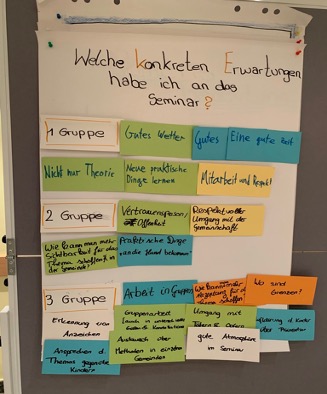 Welche konkreten Erwartungen
habe ich an das
Seminar?
1 Gruppe
Gutes Wetter
Gutes
Eine gute Zeit
Nicht nur Theorie
Neue praktische
Dinge lernen
Mitarbeit und Respekt
2 Gruppe
Vertrauensperson/
Offenheit
Respektvoller
Umgang mit der
Gemeinschaft
Wie kann man mehr
Sichtbarkeit für das
Thema schaffen in
der Gemeinde?
Praktische Dinge
an die Hand bekommen
3 Gruppe
Arbeit in Gruppen
Wie kann man mehr
für das
Thema schaffen?
Wo sind
Grenzen?
Erkennung von
Anzeichen
Gruppenarbeit
Umgang mit
Tätern & Opfern
Aufklärung d. Kinder
über Prävention
Ansprechen d.
Themas gegenüber
Kindern
Austausch über
Methoden in einzelnen
Gemeinden
gute Atmosphäre
im Seminar